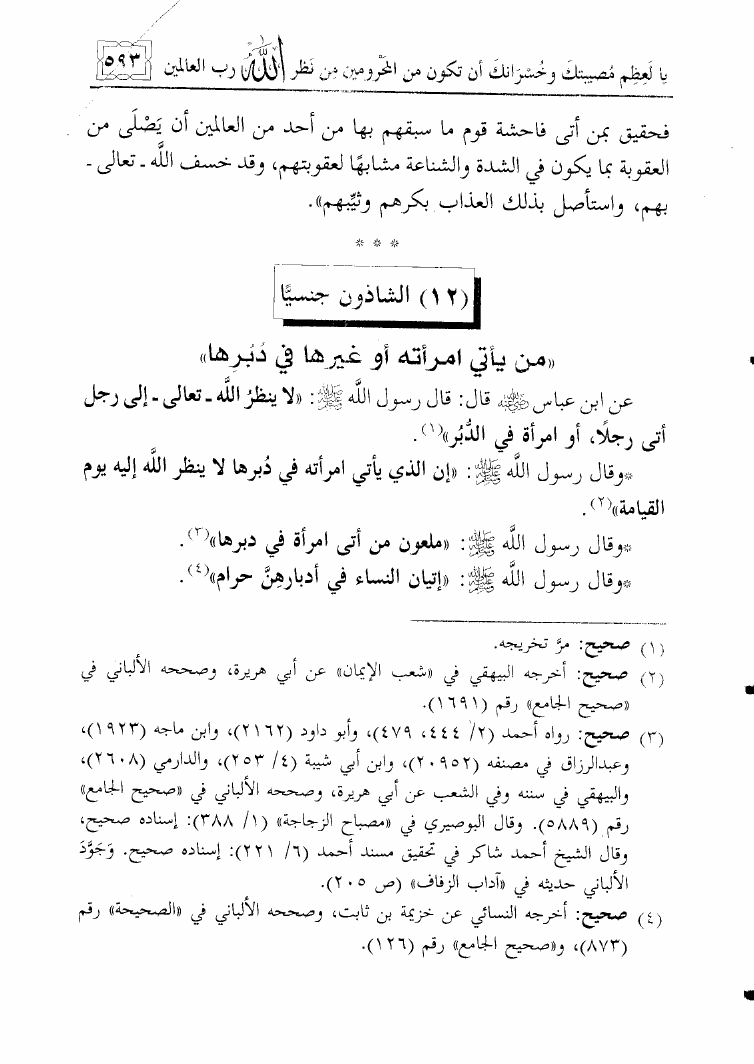 يا لَعِظم مُصيبتكَ وخُسْرَانكَ أن تكون من المَحْرومين مِن نَظر اللَّه رب العالمين
٥٩٣
فحقيق بمن أتى فاحشة قوم ما سبقهم بها من أحد من العالمين أن يَصْلَى من
العقوبة بما يكون في الشدة والشناعة مشابهًا لعقوبتهم، وقد خسف اللَّه ـ تعالى ـ
بهم، واستأصل بذلك العذاب بكرهم وثيِّبهم».
* * *
(١٢) الشاذون جنسيًّا
«من يأتي امرأته أو غيرها في دُبُرها»
عن ابن عباس رضي الله عنهما قال: قال رسول اللَّه ﷺ: «لا ينظرُ اللَّه ـ تعالى ـ إلى رجل
أتى رجلًا، أو امرأة في الدُّبُر»(١).
*وقال رسول اللَّه ﷺ: «إن الذي يأتي امرأته في دُبرها لا ينظر اللَّه إليه يوم
القيامة»(٢).
*وقال رسول اللَّه ﷺ: «ملعون من أتى امرأة في دبرها»(٣).
*وقال رسول اللَّه ﷺ: «إتيان النساء في أدبارهِنَّ حرام»(٤).
(١) صحيح: مرَّ تخريجه.
(٢) صحيح: أخرجه البيهقي في «شعب الإيمان» عن أبي هريرة، وصححه الألباني في
«صحيح الجامع» رقم (١٦٩١).
(٣) صحيح: رواه أحمد (٢/ ٤٤٤، ٤٧٩)، وأبو داود (٢١٦٢)، وابن ماجه (١٩٢٣)،
وعبدالرزاق في مصنفه (٢٠٩٥٢)، وابن أبي شيبة (٤/ ٢٥٣)، والدارمي (٢٦٠٨)،
والبيهقي في سننه وفي الشعب عن أبي هريرة، وصححه الألباني في «صحيح الجامع»
رقم (٥٨٨٩). وقال البوصيري في «مصباح الزجاجة» (١/ ٣٨٨): إسناده صحيح،
وقال الشيخ أحمد شاكر في تحقيق مسند أحمد (٦/ ٢٢١): إسناده صحيح. وَجَوَّدَ
الألباني حديثه في «آداب الزفاف» (ص ٢٠٥).
(٤) صحيح: أخرجه النسائي عن خزيمة بن ثابت، وصححه الألباني في «الصحيحة» رقم
(٨٧٣)، و«صحيح الجامع» رقم (١٢٦).